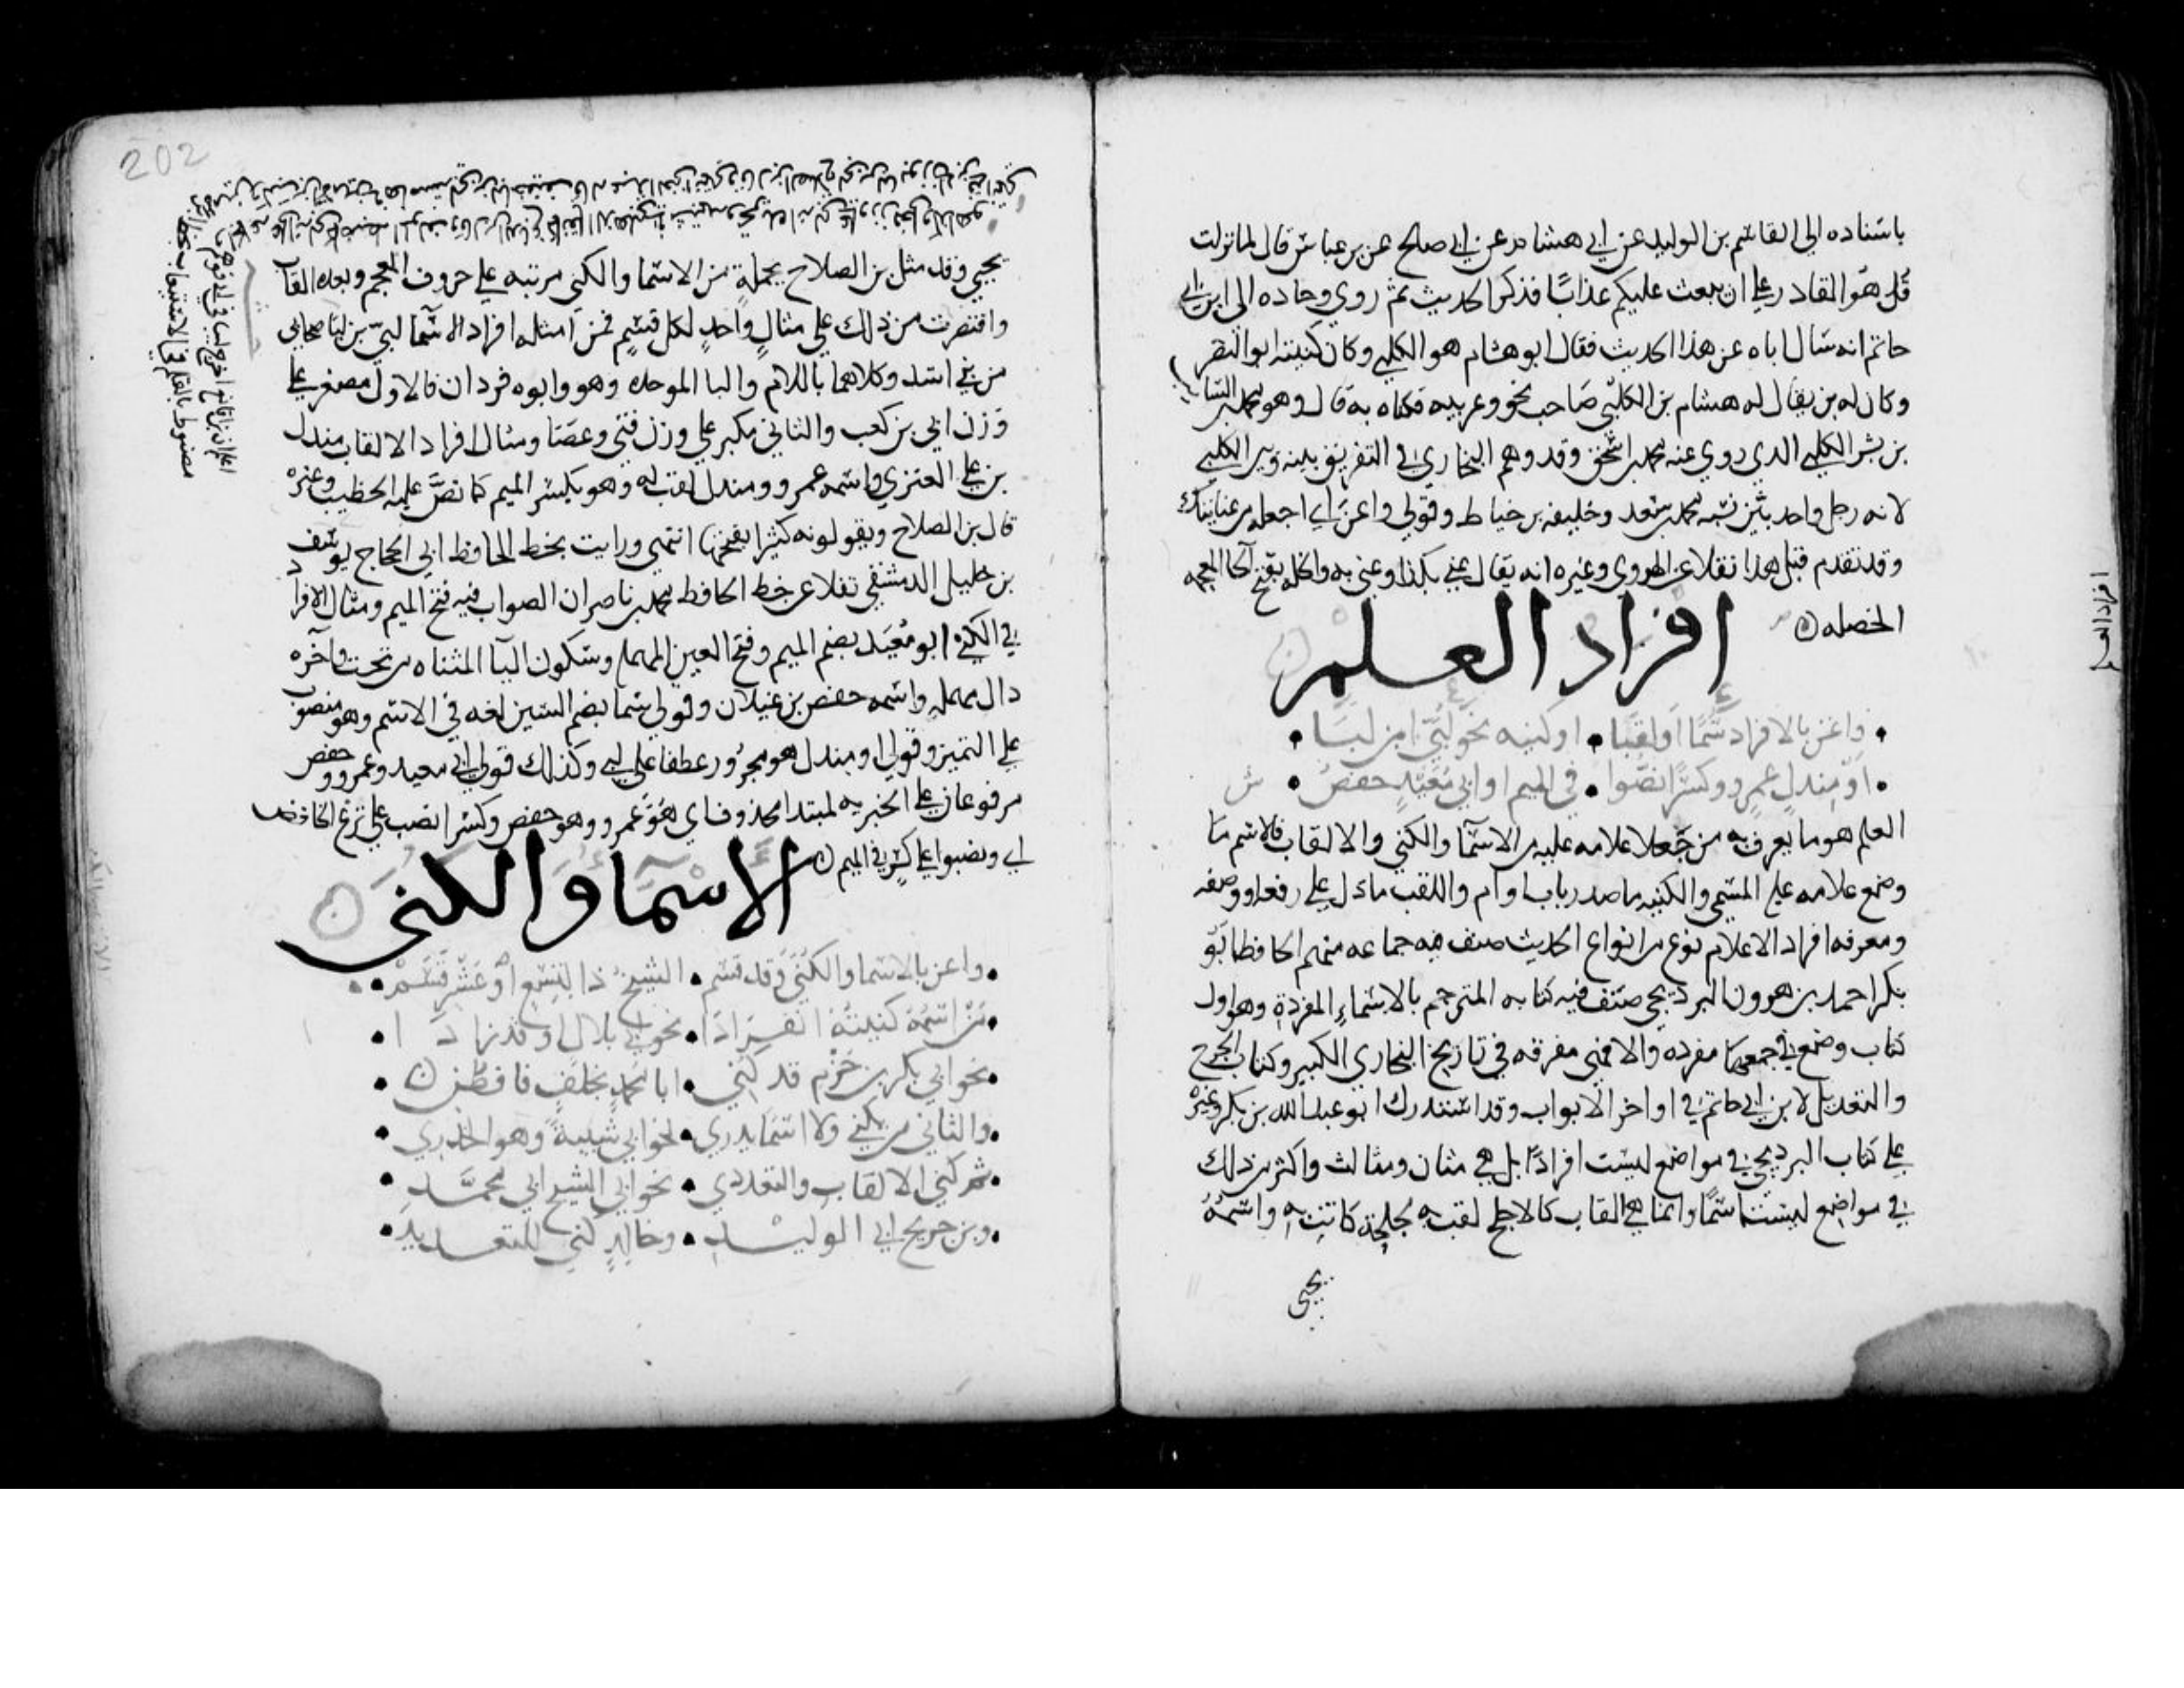 باسناده الي القاسم بن الوليد عن ابي هشام عن ابي صالح عن بن عباس قال لما نزلت
قل هو القادر علي ان يبعث عليكم عذابا فذكر الحديث ثم روي وجاده الي ابن ابي
حاتم انه سال اباه عن هذا الحديث فقال ابو هشام هو الكلبي وكان كنيته ابو النضر
وكان له بن يقال له هشام بن الكلبي صاحب نحو وعربيه فكناه به قال وهو محمد بن السايب
بن بشر الكلبي الدي روي عنه محمد بن اسحق وقد وهم البخاري في التفريق بينه وبين الكلبي
لانه رجل واحد بين نسبه محمد بن سعد وخليفه بن خياط وقولي واعن اي اجعله من عنايتك
وقد تقدم قبل هذا نقلا عن الهروي وغيره انه يقال عني بكذا وعني به والخله بفتح الخا المعجمه
الخصله
افراد العلم
واعن بالافراد سما او لقبا • او كنيه نحو لبي ابن لبا
او مندل عمرو وكسرا نصوا • في الميم او ابي معيد حفص
العلم هو ما يعرف به من جعل علامه عليه من الاسما والكني والالقاب فالاسم ما
وضع علامه علي المسمي والكنيه ما صدر باب او ام واللقب ما دل علي رفعه او وصفه
ومعرفه افراد الاعلام نوع من انواع الحديث صنف فيه جماعه منهم الحافظ ابو
بكر احمد بن هرون البرديجي صنف فيه كتابه المترجم بالاسماء المفردة وهو اول
كتاب وضع في جمعها مفرده والا فهي مفرقه في تاريخ البخاري الكبير وكتاب الجرح
والتعديل لابن ابي حاتم في اواخر الابواب وقد استدرك ابو عبد الله بن بكر وغيره
علي كتاب البرديجي في مواضع ليست افرادا بل هي مثان ومثالث واكثر من ذلك
في مواضع ليست اسما وانما هي القاب كالاجلح لقب به لجلحة كانت به واسمه
يحيي
افراد العلم
202
يحيي وقد مثل بن الصلاح بجملة من الاسما والكني مرتبه علي حروف المعجم وبعده القاب
واقتصرت من ذلك علي مثال واحد لكل قسم فمن امثله افراد الاسما لبي بن لبا صحابي
من بني اسد وكلاهما باللام والبا الموحده وهو وابوه فردان فالاول مصغر علي
وزن ابي بن كعب والثاني مكبر علي وزن فتي وعصا ومثال افراد الالقاب مندل
بن علي العنزي واسمه عمرو ومندل لقب له وهو بكسر الميم كما نص عليه الخطيب وغيره
قال بن الصلاح ويقولونه كثيرا بفتحها انتهي ورايت بخط الحافظ ابي الحجاج يوسف
بن خليل الدمشقي نقلا عن خط الحافظ محمد بن ناصر ان الصواب فيه فتح الميم ومثال الافراد
في الكني ابو معيد بضم الميم وفتح العين المهمله وسكون اليا المثناه من تحت واخره
دال مهمله واسمه حفص بن غيلان وقولي سما بضم السين لغه في الاسم وهو منصوب
علي التمييز وقولي او مندل هو مجرور عطفا علي لبي وكذلك قولي ابي معيد وعمرو وحفص
مرفوعان علي الخبريه لمبتدا محذوف اي هو عمرو وهو حفص وكسرا نصب علي نزع الخافض
اي ونصوا علي كسر في الميم
الاسما والكني
واعن بالاسما والكني وقد قسم • الشيخ ذا لتسع او عشر قسم
من اسمه كنيته انفرادا • نحو ابي بلال او قد زادا
نحو ابي بكر بن حزم قد كني • ابا محمد بخلف فافطن
والثاني من يكني ولا اسما يدري • نحو ابي شيبة وهو الخدري
ثم كني الالقاب والتعدد • نحو ابي الشيخ ابي محمد
وبن جريج ابي الوليد • وخالد كني للتعديد